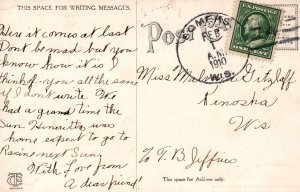 THIS SPACE FOR WRITING MESSAGES.
Here it comes at last
Dont be mad but you
know how it is I
think of you all the same
if I don't write. We
had a grand time the
Sun. Henrietta was
home expect to go to
Racine next Sun
With Love from
A dear friend!
Post
SOMERS
FEB
1
A.M.
1910
WIS.
U.S. POSTAGE
Miss
Kenosha
Ws
c/o T. B. Jeffrey
This space for Address only.